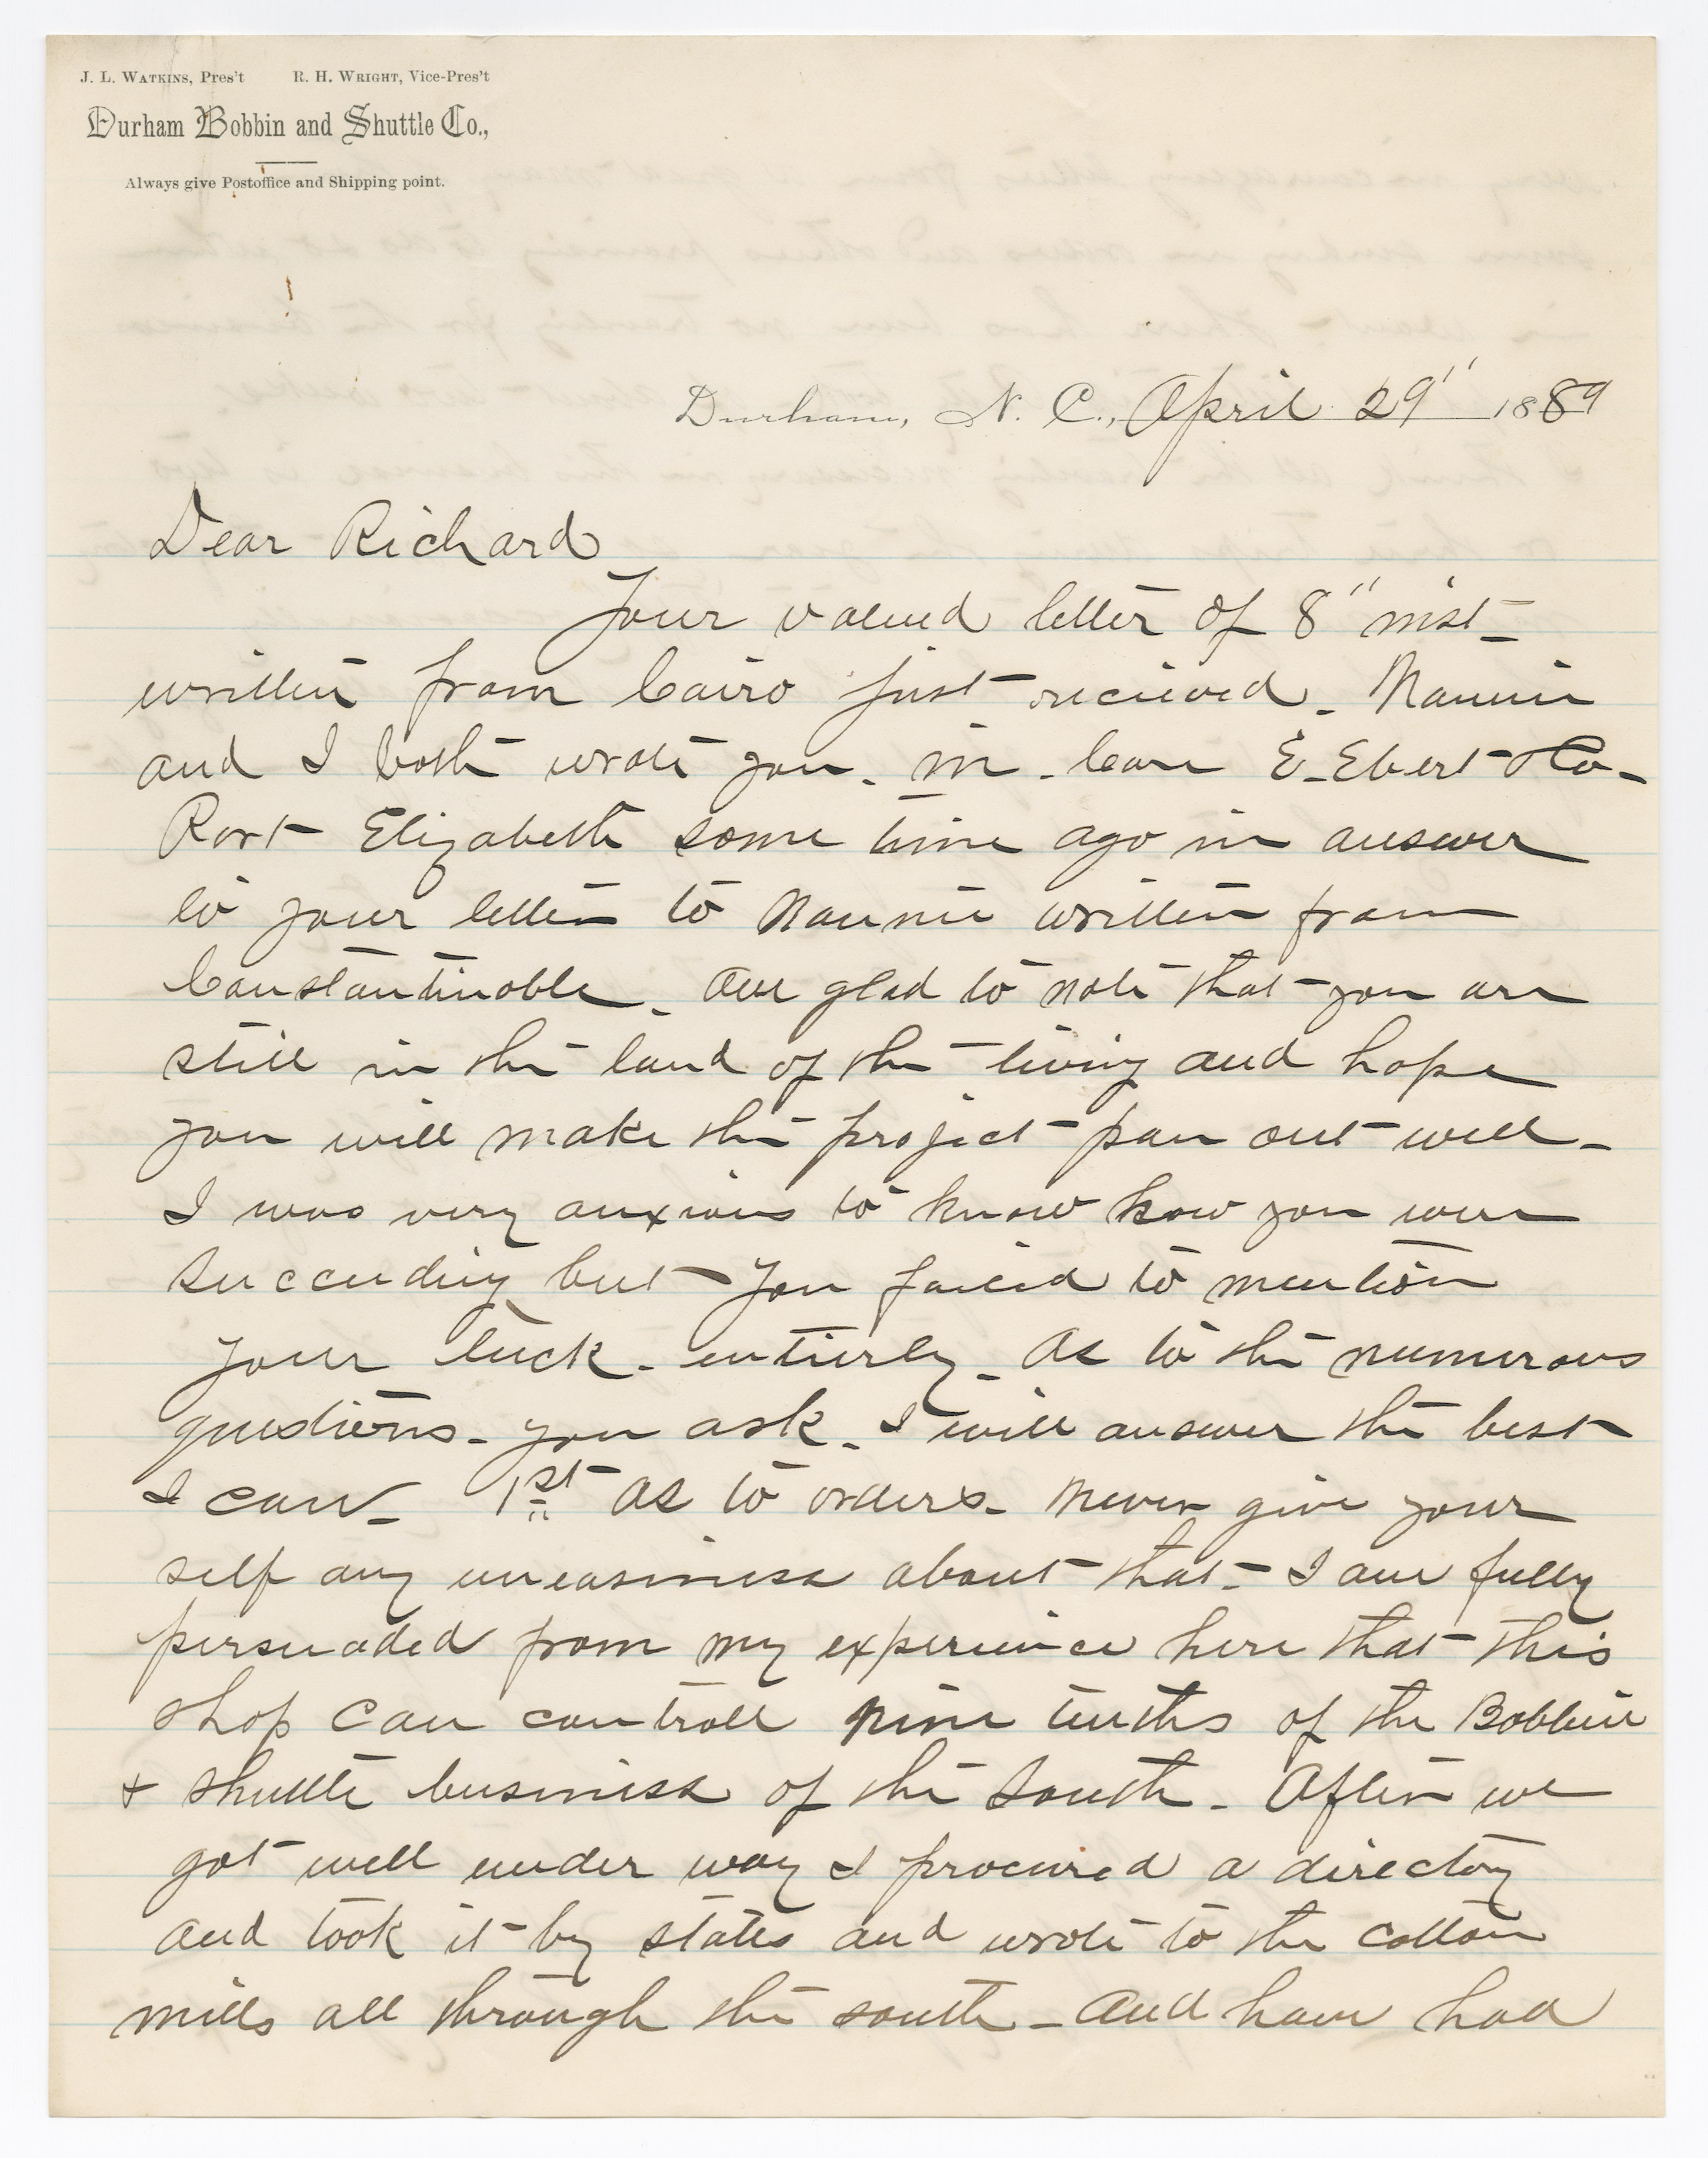 J. L. WATKINS, Pres't R. H. WRIGHT, Vice-Pres't
Durham Bobbin and Shuttle Co.,
Always give Postoffice and Shipping point.
Durham, N. C., April 29" 1889
Dear Richard
Your valued letter of 8" inst-
written from Cairo just recieved. Nannie
and I both wrote you. in. Care E. Ebert & Co-
Port Elizabeth some time ago in answer
to your letter to Nannie written from
Constantinoble. Am glad to note that you are
still in the land of the living and hope
you will make the project pan out well-
I was very anxious to know how you were
succeeding but you failed to mention
your luck. entirely. As to the numerous
questions. you ask. I will answer the best
I can. 1st As to orders. Never give your
self any uneasiness about that- I am fully
persuaded from my experience here that this
shop can controll nine tenths of the Bobbin
& Shuttle business of the South. After we
got well under way I procured a directory
and took it by states and wrote to the cotton
mills all through the south- And have had